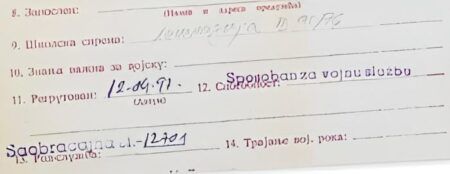 8. Запослен:
(Назив и адреса предузећа)
9. Школска спрема: Гимназија III
10. Знања важна за војску:
11. Регрутован: 12.04.91. 12. Способност: Sposoban za vojnu službu
(Датум)
Saobraćajna 12701
13. Род-служба: 14. Трајање вој. рока: